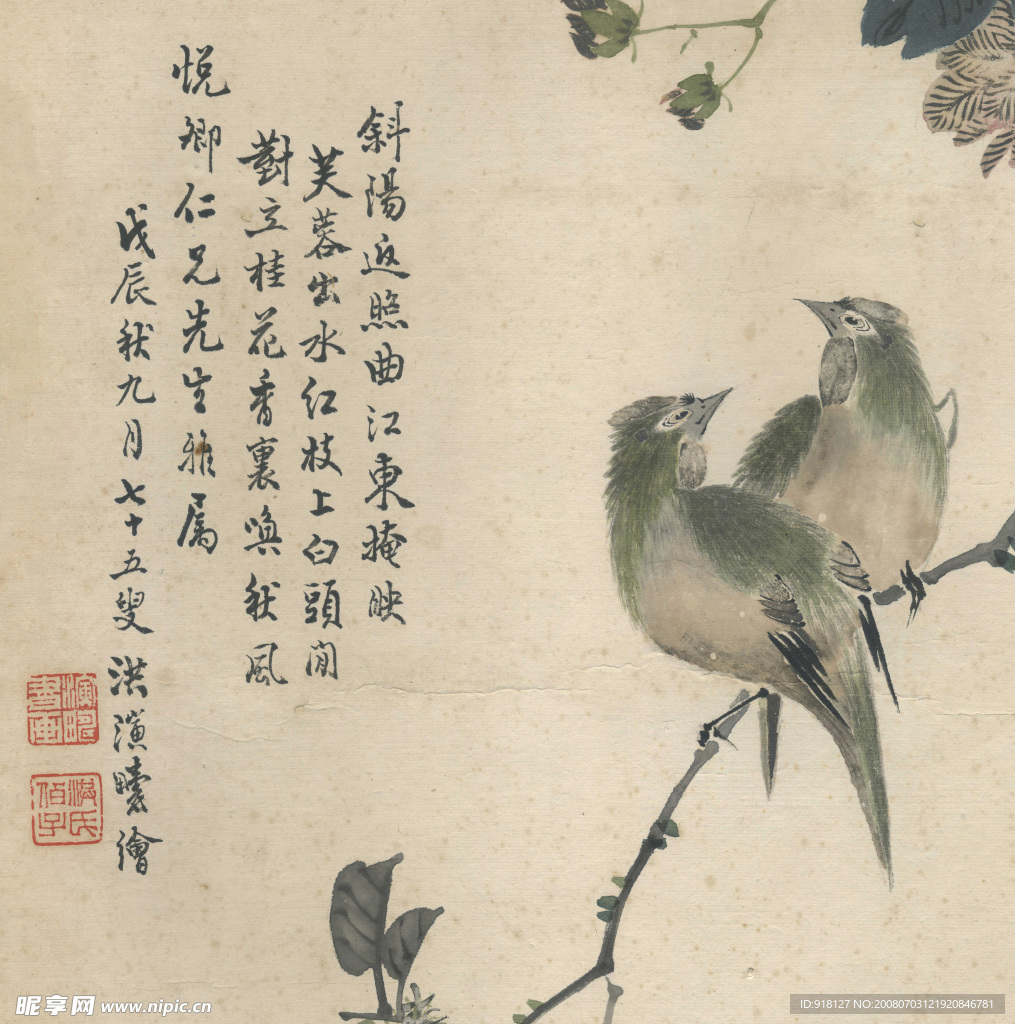 斜陽返照曲江東掩映
芙蓉出水紅枝上白頭閒
對立桂花香裏喚秋風
悅卿仁兄先生雅属
戊辰秋九月七十五叟洪演疇繪
洪氏
昵享网 www.nipic.cn
ID:918127 NO:20080703121920846781